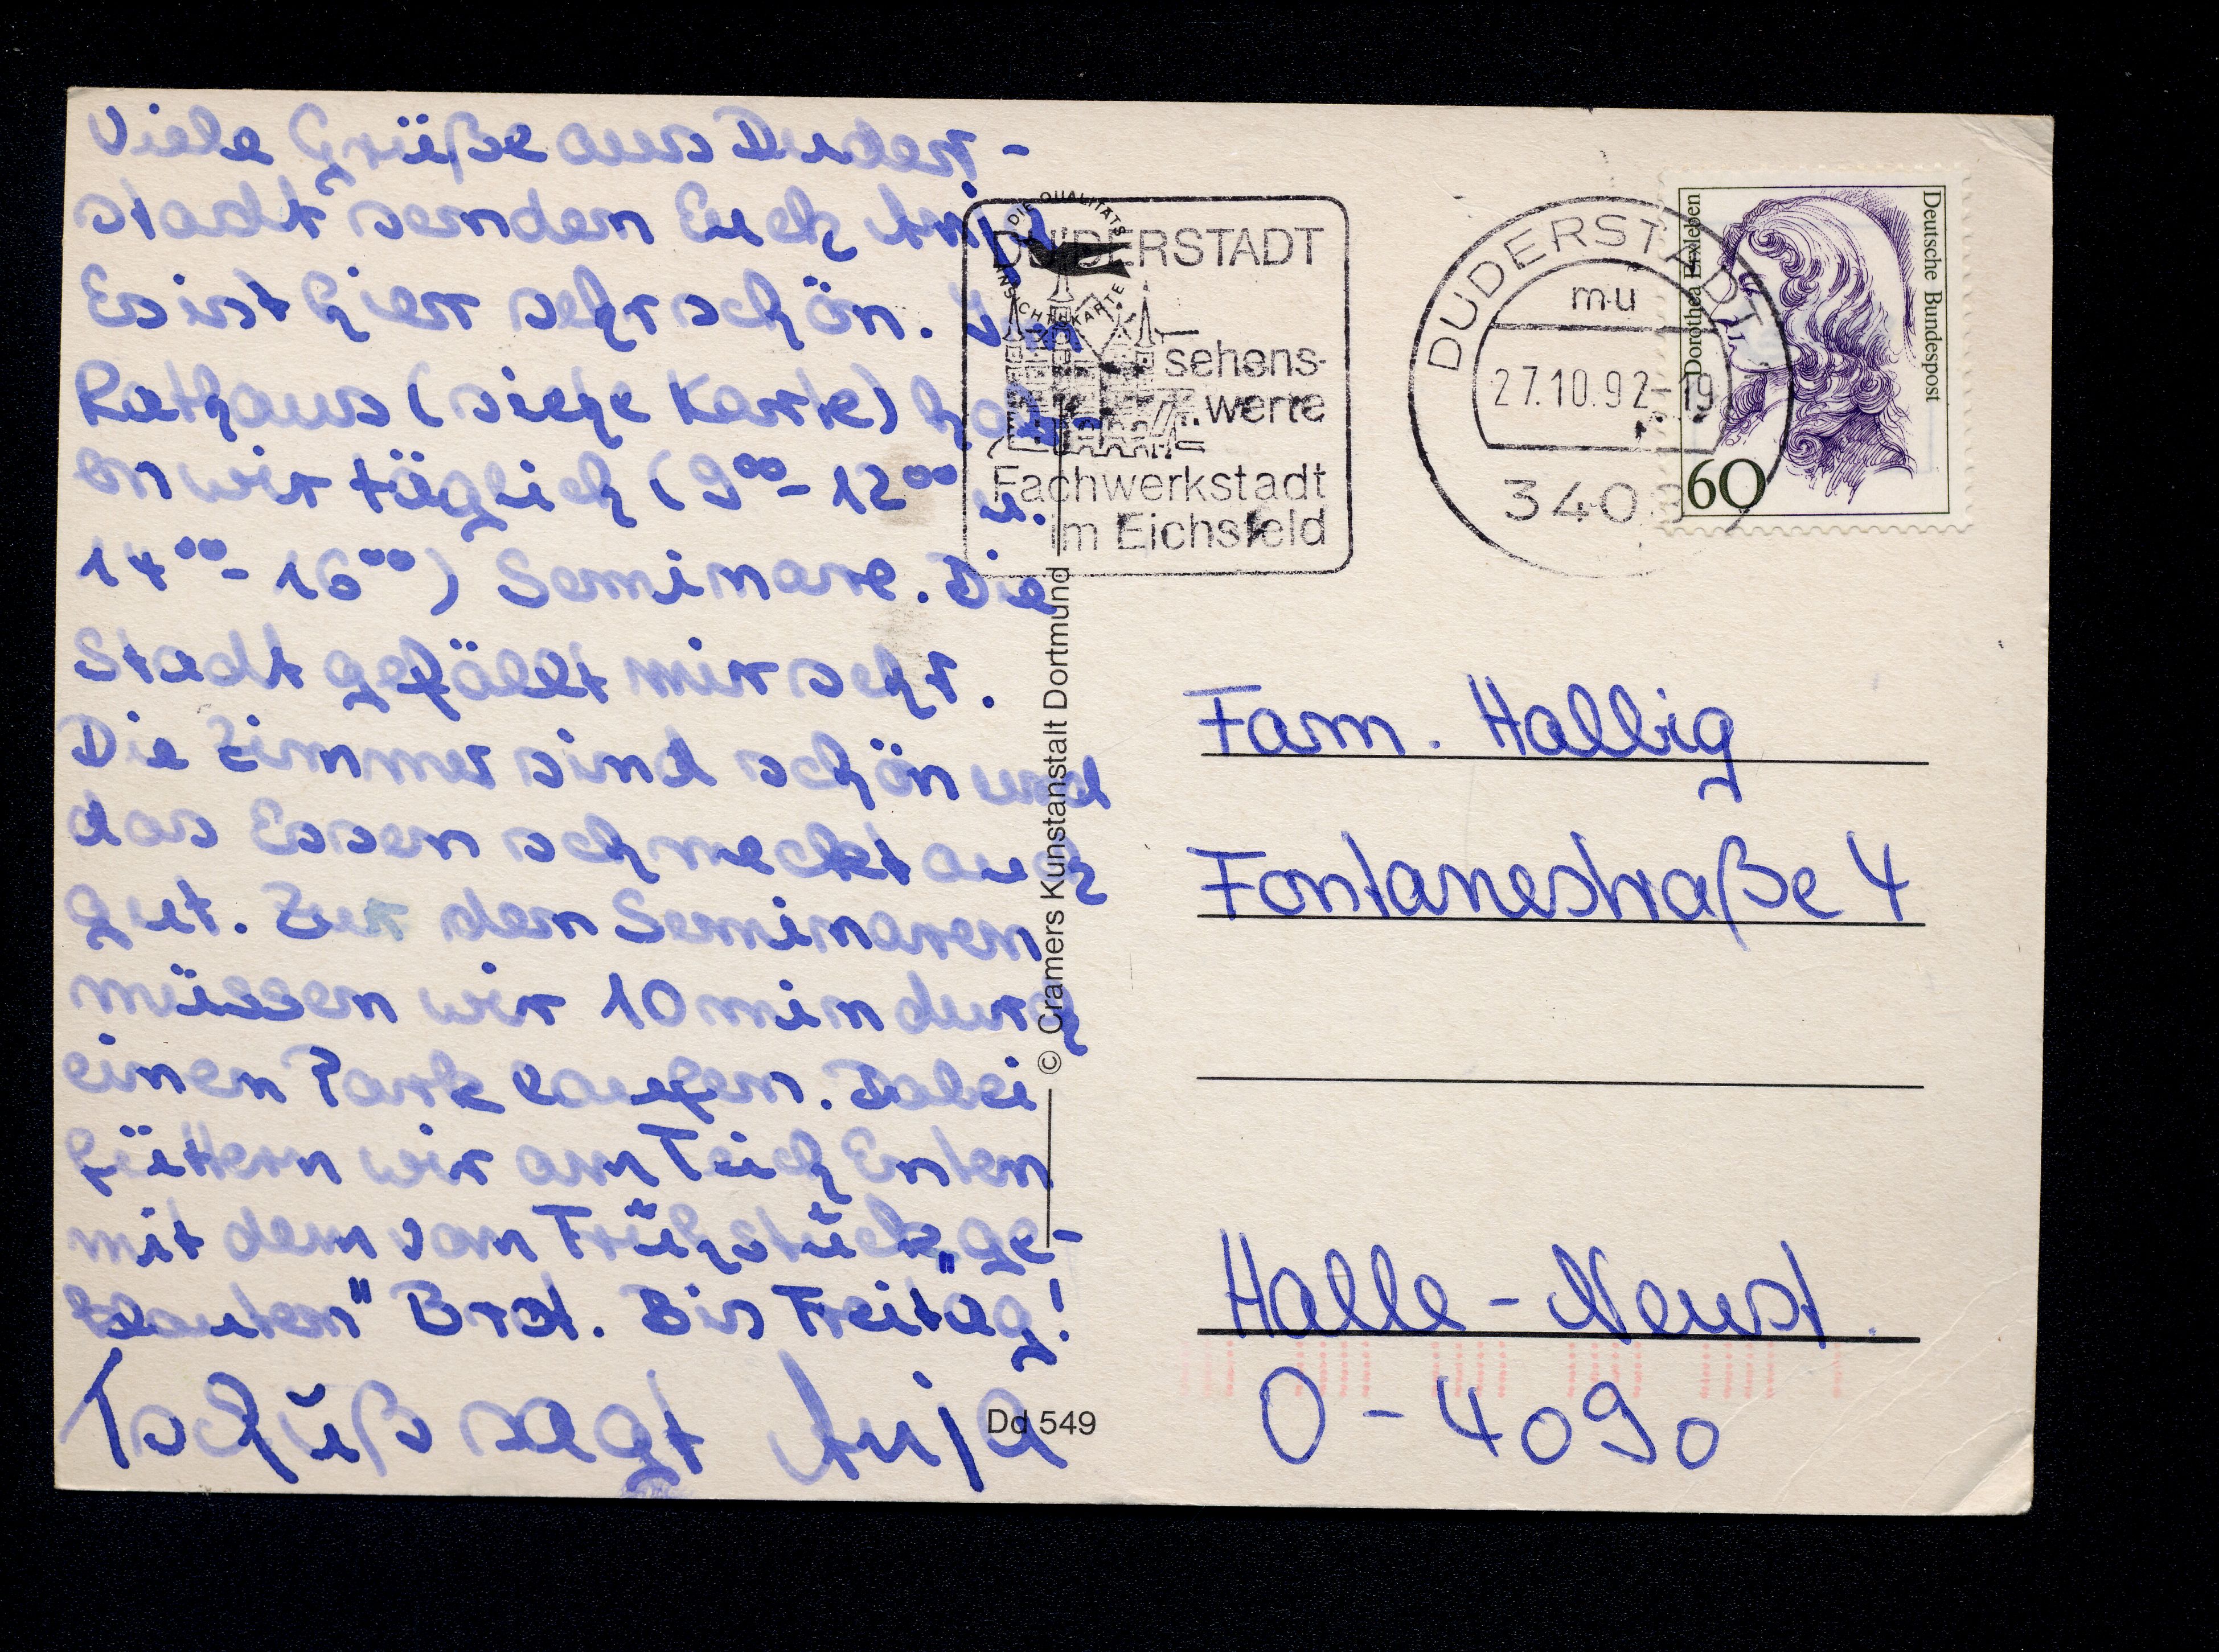 Viele Grüße aus Duder-
stadt senden Euch Anja
Es ist hier sehr schön. Im
Rathaus (siehe Karte) hab-
en wir täglich (9⁰⁰-12⁰⁰ u.
14⁰⁰-16⁰⁰) Seminare. Die
Stadt gefällt mir sehr.
Die Zimmer sind schön und
das Essen schmeckt auch
gut. Zu den Seminaren
müssen wir 10 min durch
einen Park laufen. Dabei
füttern wir am Teich Enten
mit dem vom Frühstück „ge-
klauten" Brot. Bis Freitag!
Tschüß sagt Anja
DIE QUALITÄTS
ANSICHTSKARTE
© Cramers Kunstanstalt Dortmund
Dd 549
DUDERSTADT
sehens-
werte
Fachwerkstadt
im Eichsfeld
DUDERSTADT
mu
27.10.92-19
3408
Deutsche Bundespost
Dorothea Erxleben
60
Fam. Halbig
Fontanestraße 4
Halle-Neust.
O-4090